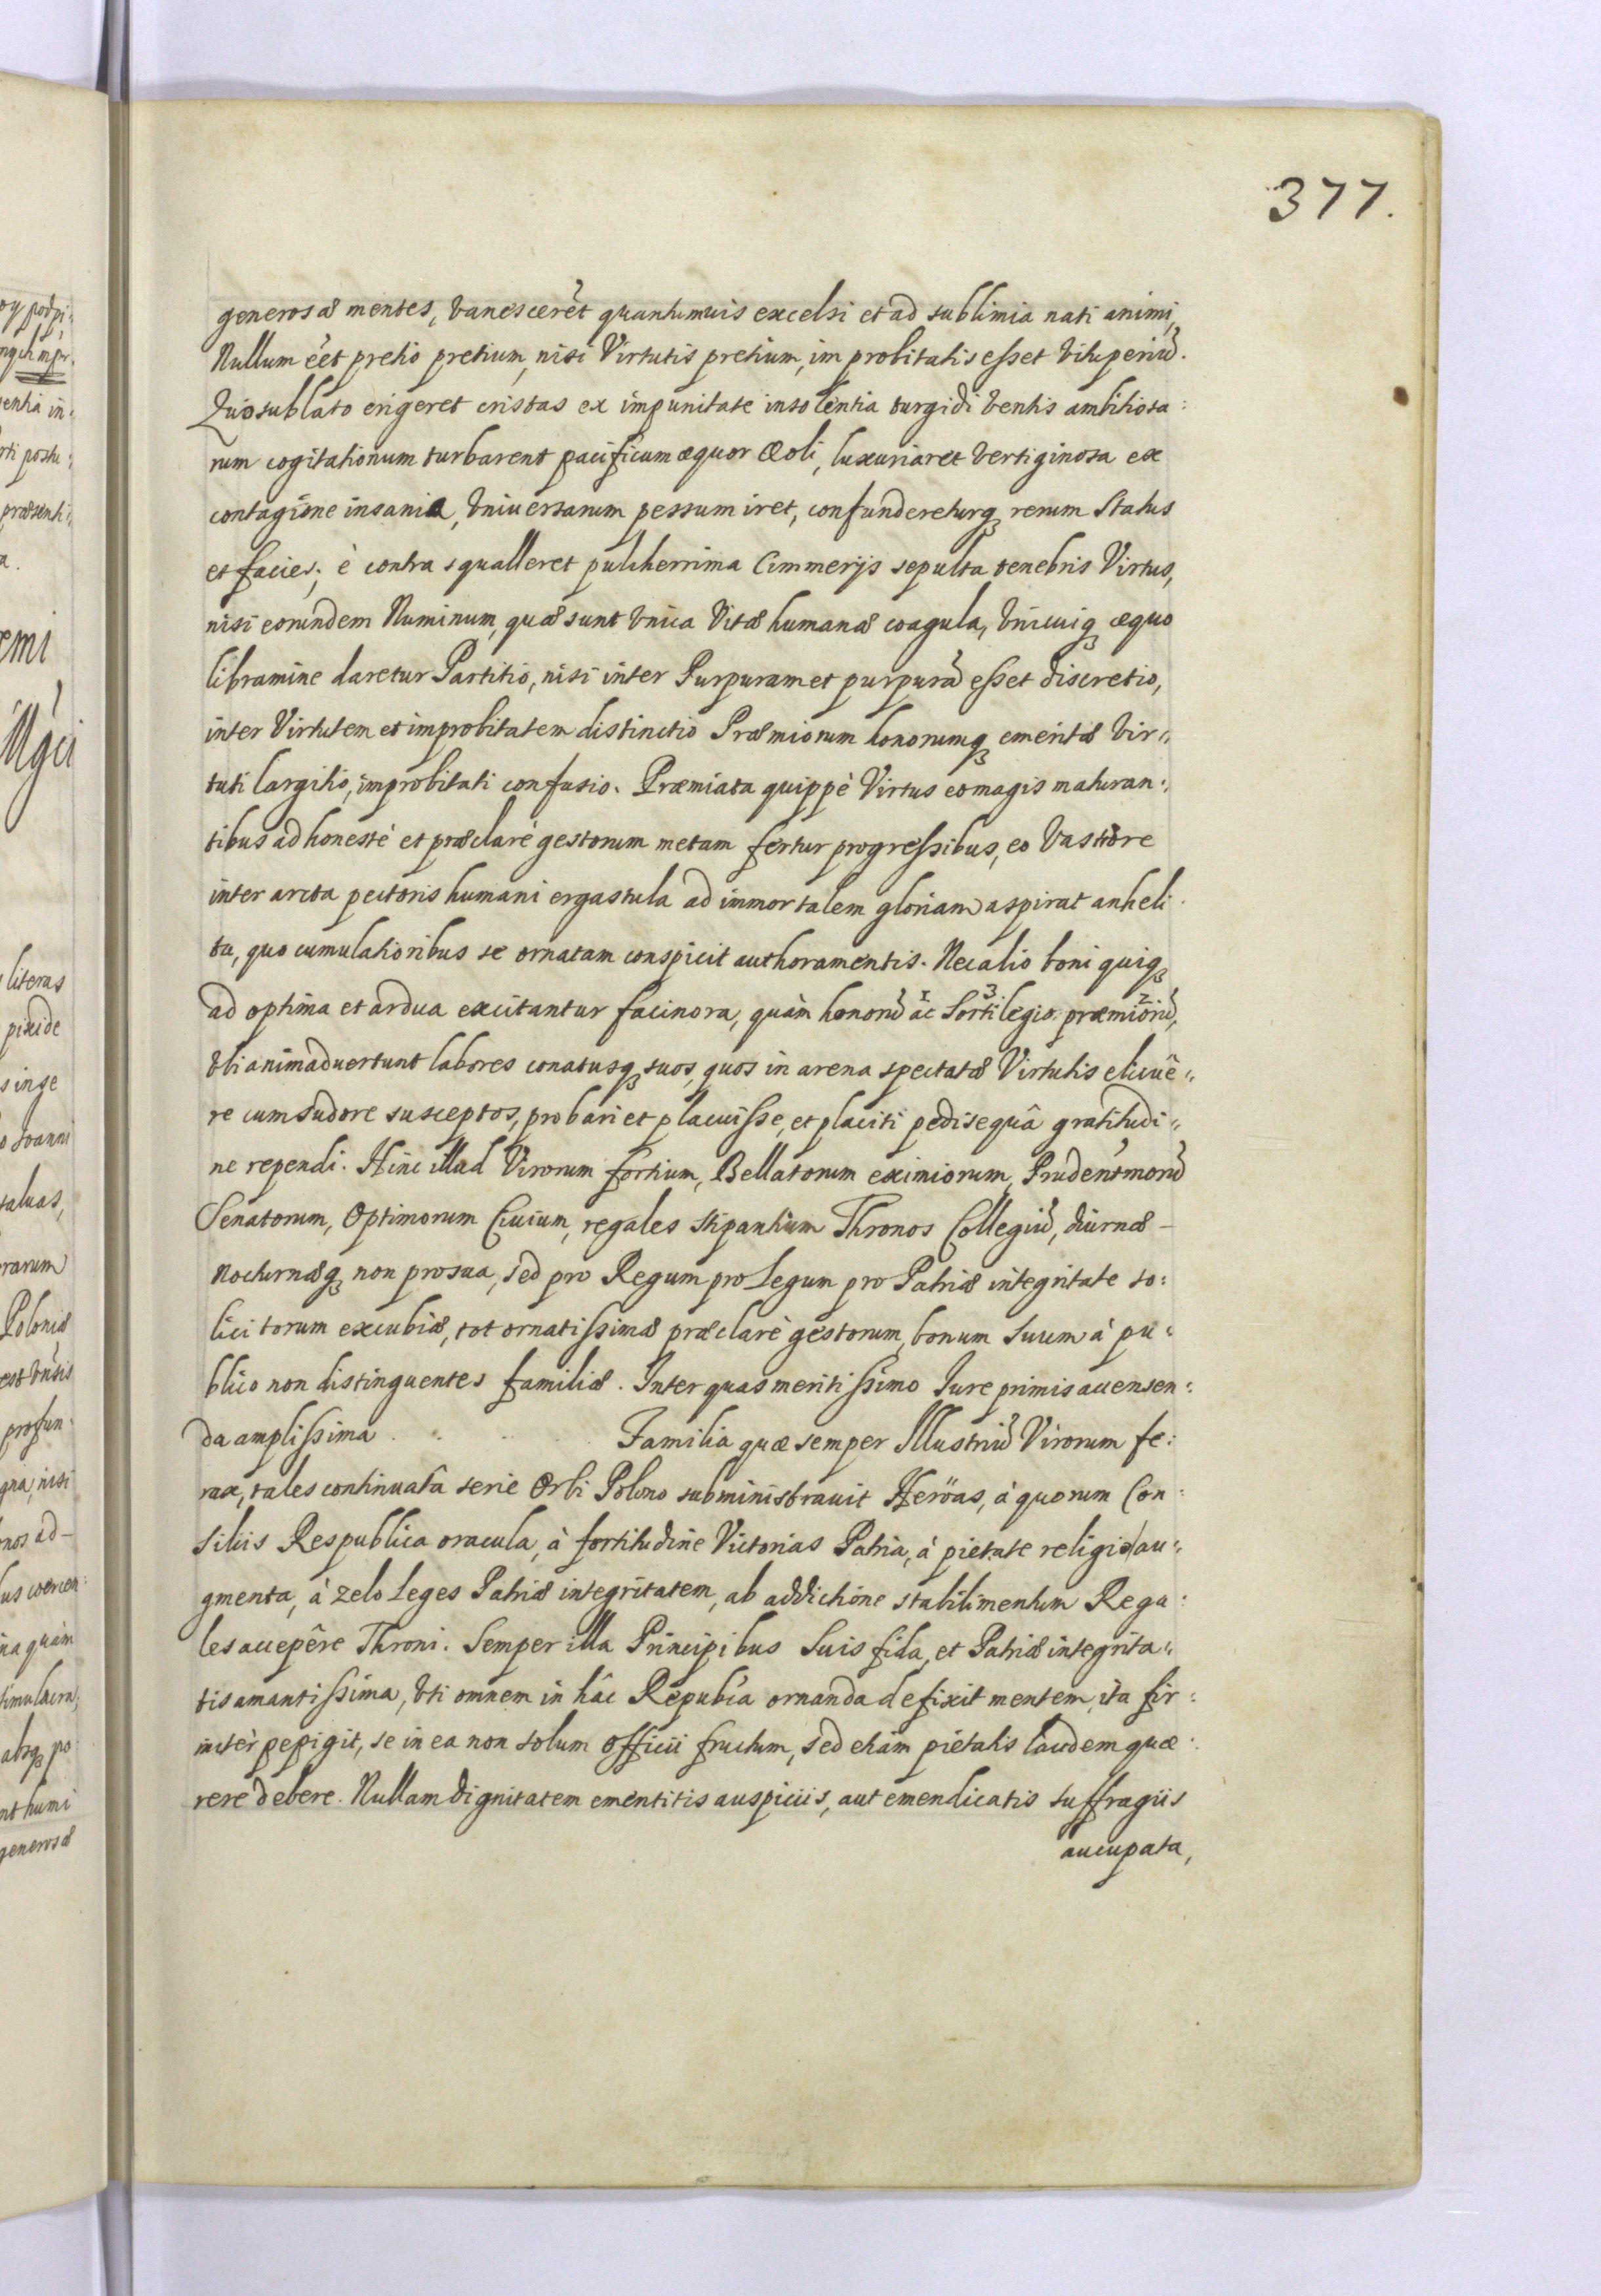 377.
generosæ mentes, vanescerẽt quantumuis excelsi et ad sublimia nati animi,
Nullum ẽet pretio pretium, nisi Virtutis pretium, improbitatis esset vituperiũ.
Quo sublato erigeret cristas ex impunitate insolentia turgidi ventis ambitiosa:
rum cogitationum turbarent pacificum æquor Æoli, luxuriaret vertiginosa ex
contagione insania, vniuersarum pessum iret, confundereturq₃ rerum Status
et facies; è contra squalleret pulcherrima Cimmerijs sepulta tenebris Virtus,
nisi eorundem Numinum, quæ sunt vnica Vitæ humanæ coagula, vnicuiq₃ æquo
libramine daretur Partitio, nisi inter Purpuram et purpurã esset discretio,
inter Virtutem et improbitatem distinctio Præmiorum honorumq₃ emeritæ Vir:
tuti largitio, improbitati confusio. Præmiata quippè Virtus eo magis maturan:
tibus ad honestè et præclarè gestorum metam fertur progressibus, eo vastiore
inter arcta pectoris humani ergastula ad immortalem gloriam aspirat anheli:
tu, quo cumulatioribus se ornatam conspicit authoramentis. Nec alio boni quiq₃
ad optima et ardua excitantur facinora, quàm honorũ ac¹ Sortilegio³ præmiorũ²,
vti animaduertunt labores conatusq₃ suos, quos in arena spectatæ Virtutis elicuê:
re cum sudore susceptos, probari et placuisse, et placiti pedisequâ gratitudi:
ne rependi. Hinc illud Virorum fortium, Bellatorum eximiorum, Prudentmorũ
Senatorum, Optimorum Ciuium, regales stipantium Thronos Collegiũ, diurnæ
nocturnæq₃ non pro sua, sed pro Regum pro Legum pro Patriæ integritate so:
licitorum excubiæ, tot ornatissimæ præclarè gestorum, bonum suum à pu:
blico non distinguentes familiæ. Inter quas meritissimo Jure primis accensen:
da amplissima . . . . Familia quæ semper Illustriũ Virorum fe:
rax, tales continuatâ serie Orbi Polono subministrauit Heröas, à quorum Con:
siliis Respublica oracula, à fortitudine Victorias Patria, à pietate religio au:
gmenta, à zelo Leges Patriæ integritatem, ab addictione stabilimentum Rega:
les accepêre Throni. Semper illa Principibus Suis fida, et Patriæ integrita:
tis amantissima, vti omnem in hâc Repubca ornanda defixit mentem, ita fir:
miter pepigit, se in ea non solum officii fructum, sed etiam pietatis laudem quæ:
rere debere. Nullam dignitatem ementitis auspiciis, aut emendicatis suffragiis
aucupata,